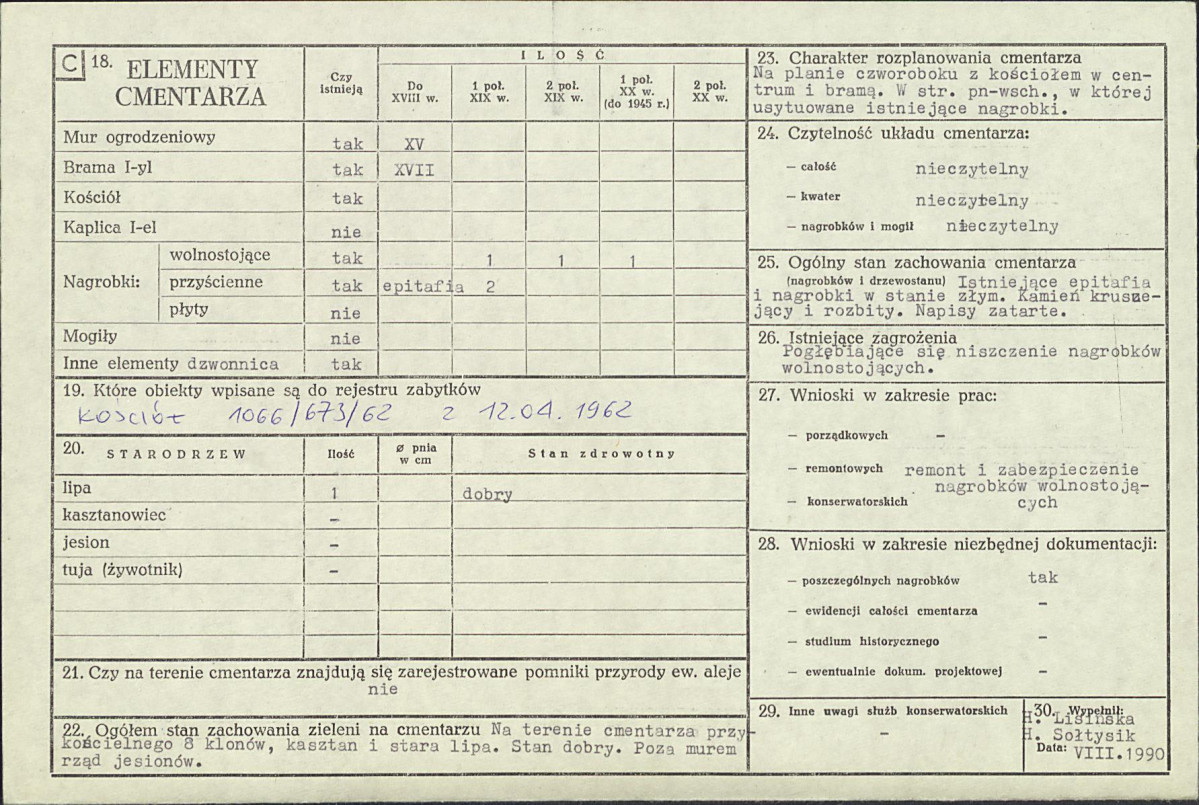 C 18. ELEMENTY CMENTARZA
Czy istnieją
I L O Ś Ć
Do XVIII w.
1 poł. XIX w.
2 poł. XIX w.
1 poł. XX w. (do 1945 r.)
2 poł. XX w.
Mur ogrodzeniowy tak XV
Brama I-yl tak XVII
Kościół tak
Kaplica I-el nie
Nagrobki: wolnostojące tak 1 1 1
przyścienne tak epitafia 2
płyty nie
Mogiły nie
Inne elementy dzwonnica tak
19. Które obiekty wpisane są do rejestru zabytków
Kościół 1066/673/62 z 12.04.1962
20. STARODRZEW Ilość ø pnia w cm Stan zdrowotny
lipa 1 dobry
kasztanowiec –
jesion –
tuja (żywotnik) –
21. Czy na terenie cmentarza znajdują się zarejestrowane pomniki przyrody ew. aleje
nie
22. Ogółem stan zachowania zieleni na cmentarzu Na terenie cmentarza przy
kościelnego 8 klonów, kasztan i stara lipa. Stan dobry. Poza murem
rząd jesionów.
23. Charakter rozplanowania cmentarza
Na planie czworoboku z kościołem w cen-
trum i bramą. W str. pn-wsch., w której
usytuowane istniejące nagrobki.
24. Czytelność układu cmentarza:
– całość nieczytelny
– kwater nieczytelny
– nagrobków i mogił nieczytelny
25. Ogólny stan zachowania cmentarza
(nagrobków i drzewostanu) Istniejące epitafia
i nagrobki w stanie złym. Kamień krusze-
jący i rozbity. Napisy zatarte.
26. Istniejące zagrożenia
Pogłębiające się niszczenie nagrobków
wolnostojących.
27. Wnioski w zakresie prac:
– porządkowych –
– remontowych remont i zabezpieczenie
nagrobków wolnostoją-
– konserwatorskich cych
28. Wnioski w zakresie niezbędnej dokumentacji:
– poszczególnych nagrobków tak
– ewidencji całości cmentarza –
– studium historycznego –
– ewentualnie dokum. projektowej –
29. Inne uwagi służb konserwatorskich
–
30. Wypełnił:
H. Lisińska
H. Sołtysik
Data: VIII.1990